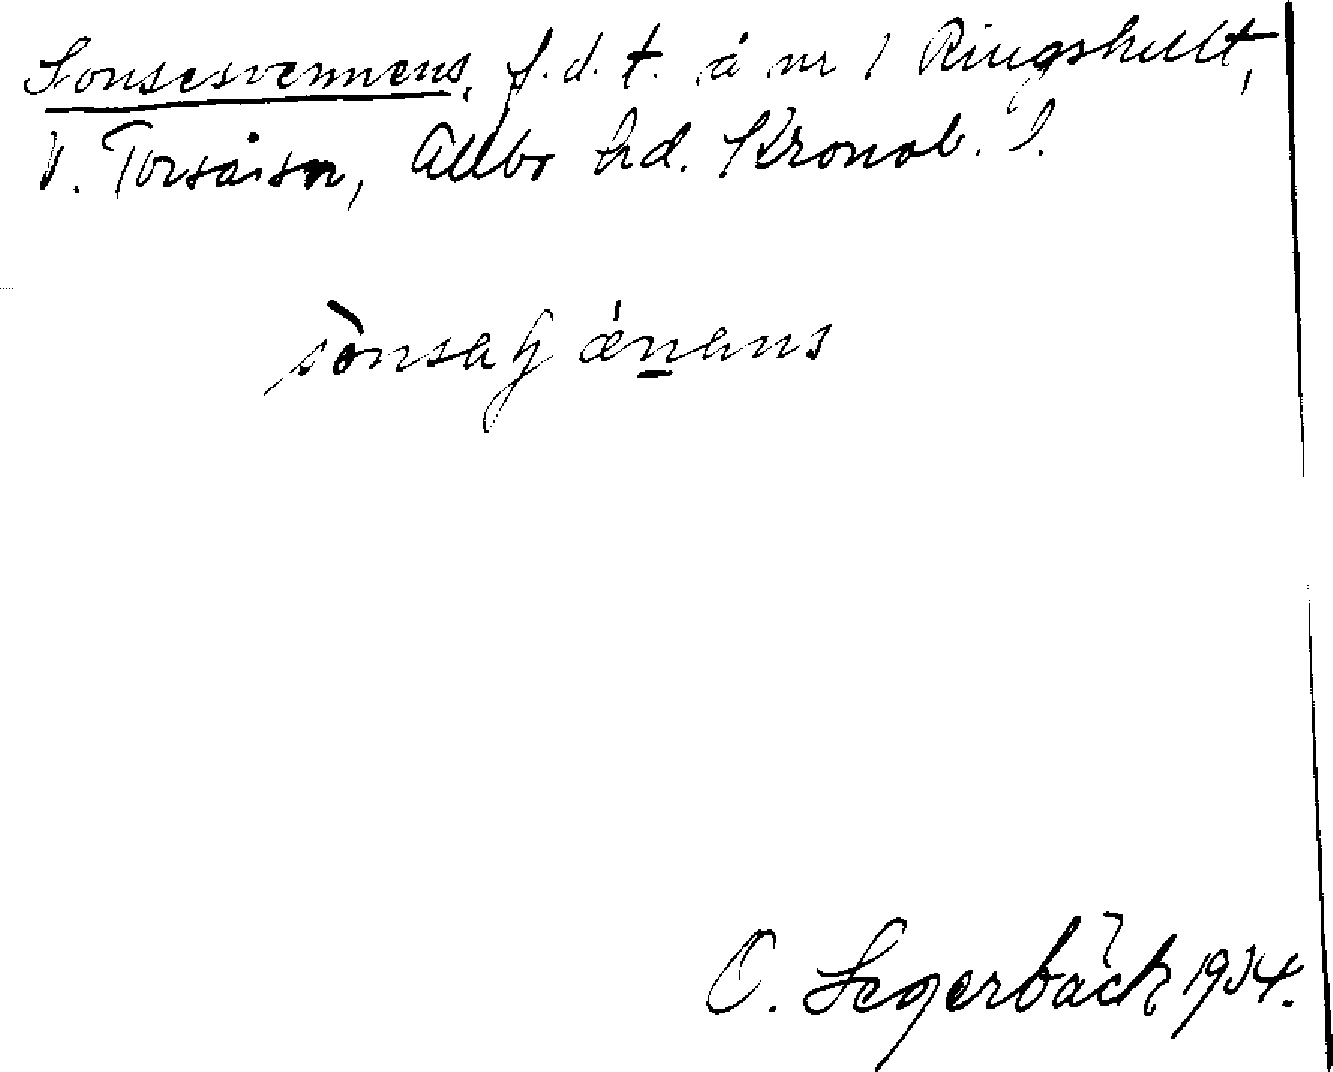 Sonsesvennens, f.d.t. å nr 1 Ringshult,
V. Torsås sn, Allbo hd. Kronob. l.
C. Segerbäck 1934.